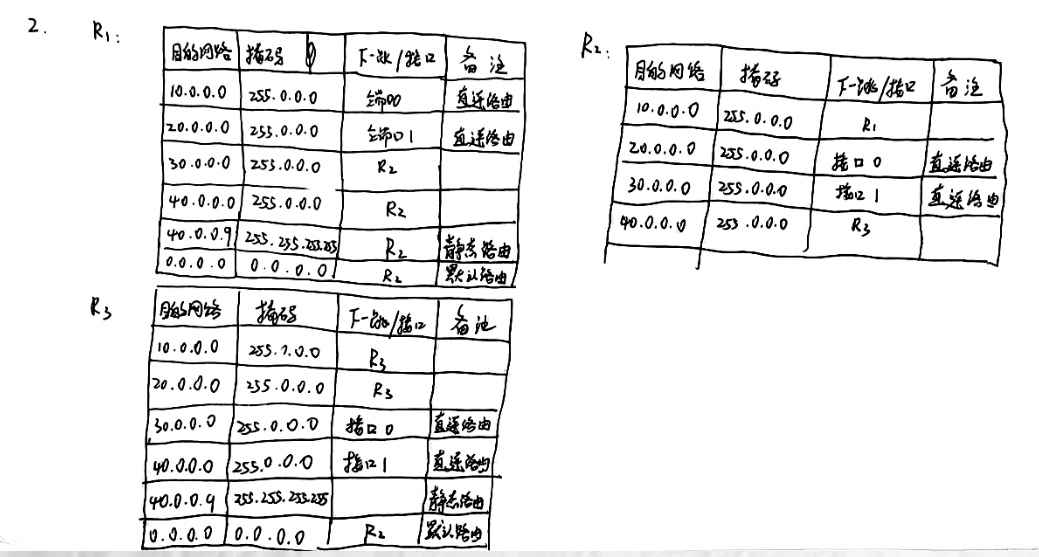 2. R1:
目的网络 掩码 下一跳/接口 备注
10.0.0.0 255.0.0.0 端口0 直连路由
20.0.0.0 255.0.0.0 端口1 直连路由
30.0.0.0 255.0.0.0 R2
40.0.0.0 255.0.0.0 R2
40.0.0.9 255.255.255.255 R2 静态路由
0.0.0.0 0.0.0.0 R2 默认路由
R2:
目的网络 掩码 下一跳/接口 备注
10.0.0.0 255.0.0.0 R1
20.0.0.0 255.0.0.0 接口0 直连路由
30.0.0.0 255.0.0.0 接口1 直连路由
40.0.0.0 255.0.0.0 R3
R3
目的网络 掩码 下一跳/接口 备注
10.0.0.0 255.?.0.0 R3
20.0.0.0 255.0.0.0 R3
30.0.0.0 255.0.0.0 接口0 直连路由
40.0.0.0 255.0.0.0 接口1 直连路由
40.0.0.9 255.255.255.255 静态路由
0.0.0.0 0.0.0.0 R2 默认路由